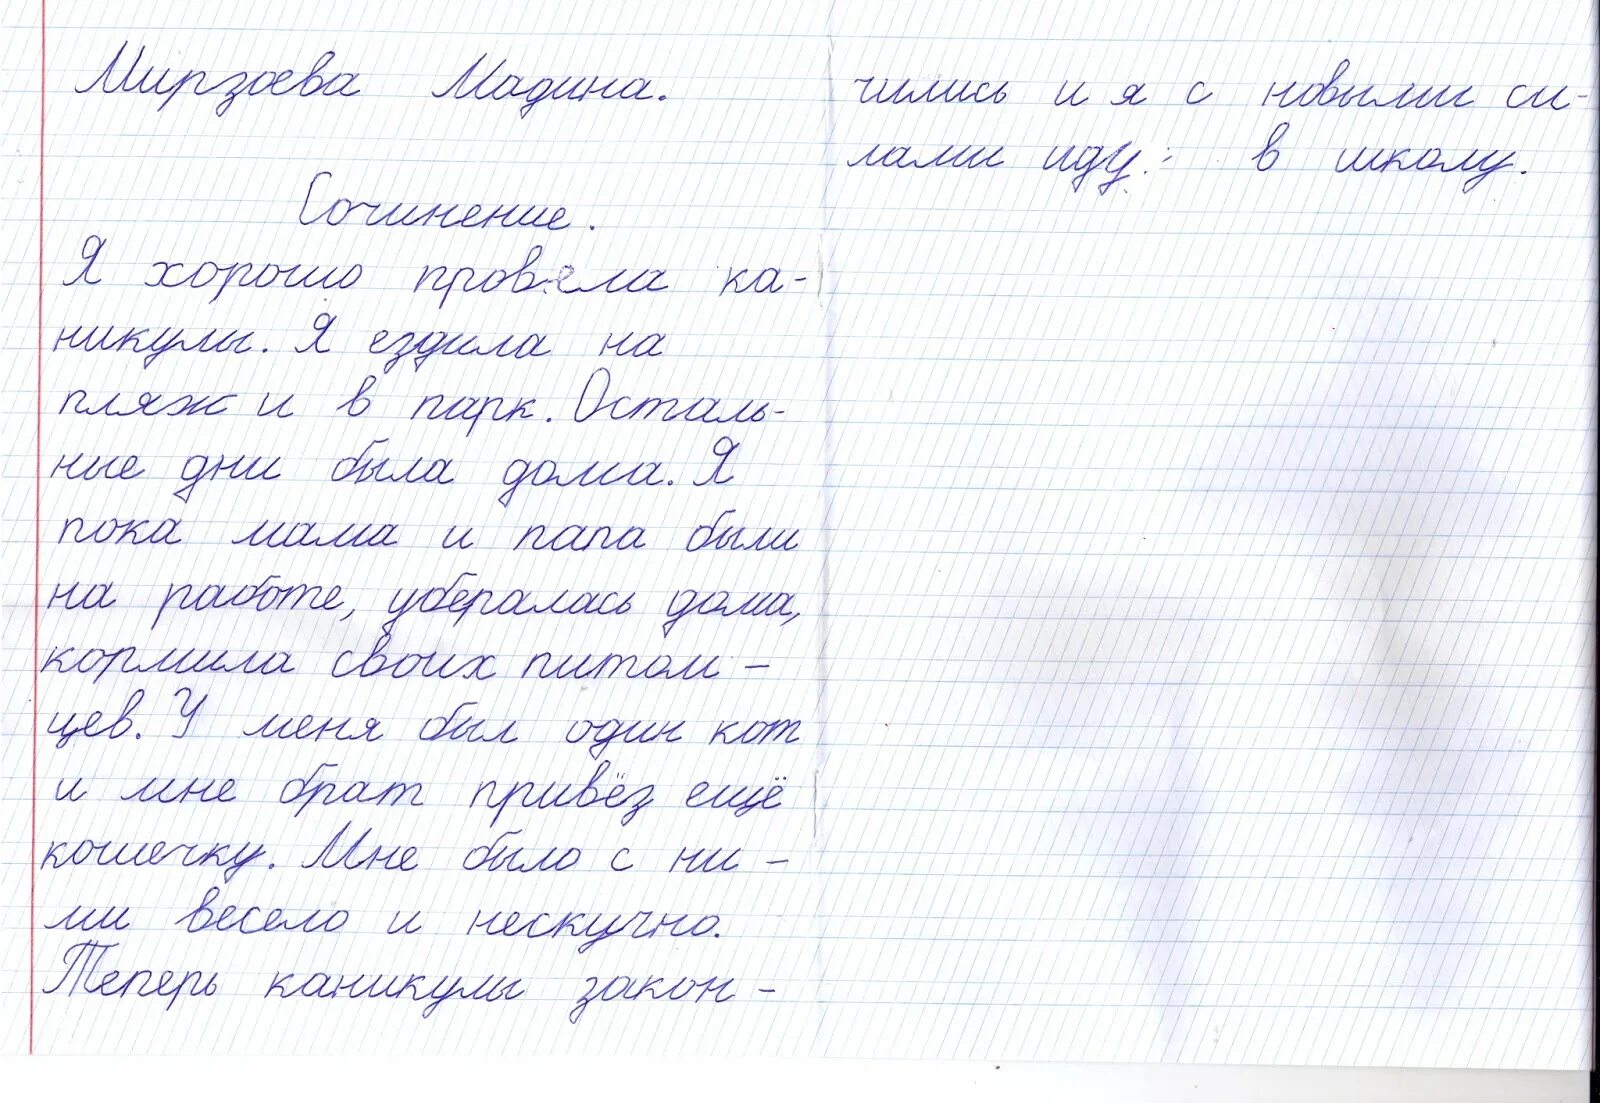 Мирзоева Мадина.
Сочинение.
Я хорошо провела ка-
никулы. Я ездила на
пляж и в парк. Осталь-
ные дни была дома. Я
пока мама и папа были
на работе, убералась дома,
кормила своих питом-
цев. У меня был один кот
и мне брат привёз ещё
кошечку. Мне было с ни-
ми весело и нескучно.
Теперь каникулы закон-
чились и я с новыми си-
лами иду в школу.